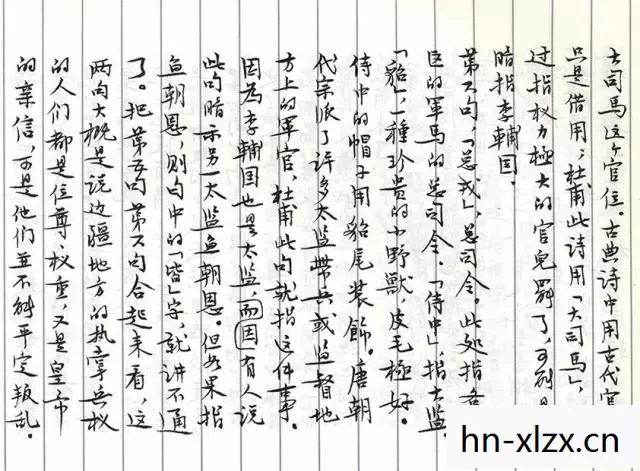 大司馬这个官位。古典诗中用古代官
只是借用;杜甫此诗用「大司馬」,
过指权力極大的官兒罷了,可能是
暗指李輔国。
第六句,「总戎」,总司令。此处指各
区的軍馬的总司令。「侍中」,指太监。
「貂」,一種珍贵的小野獸,皮毛極好。
侍中的帽子用貂尾装飾。唐朝
代宗派了许多太监帶兵或监督地
方上的軍官,杜甫此句就指这件事。
因為李輔国也是太监,而因有人说
此句暗示另一太监鱼朝恩。但如果指
鱼朝恩,则句中的「皆」字,就讲不通
了。把第五句第六句合起来看,这
两句大概是说边疆地方的执掌兵权
的人们都是位尊、权重,又是皇帝
的亲信,可是他们並不能平定叛乱。
hn-xlzx.cn